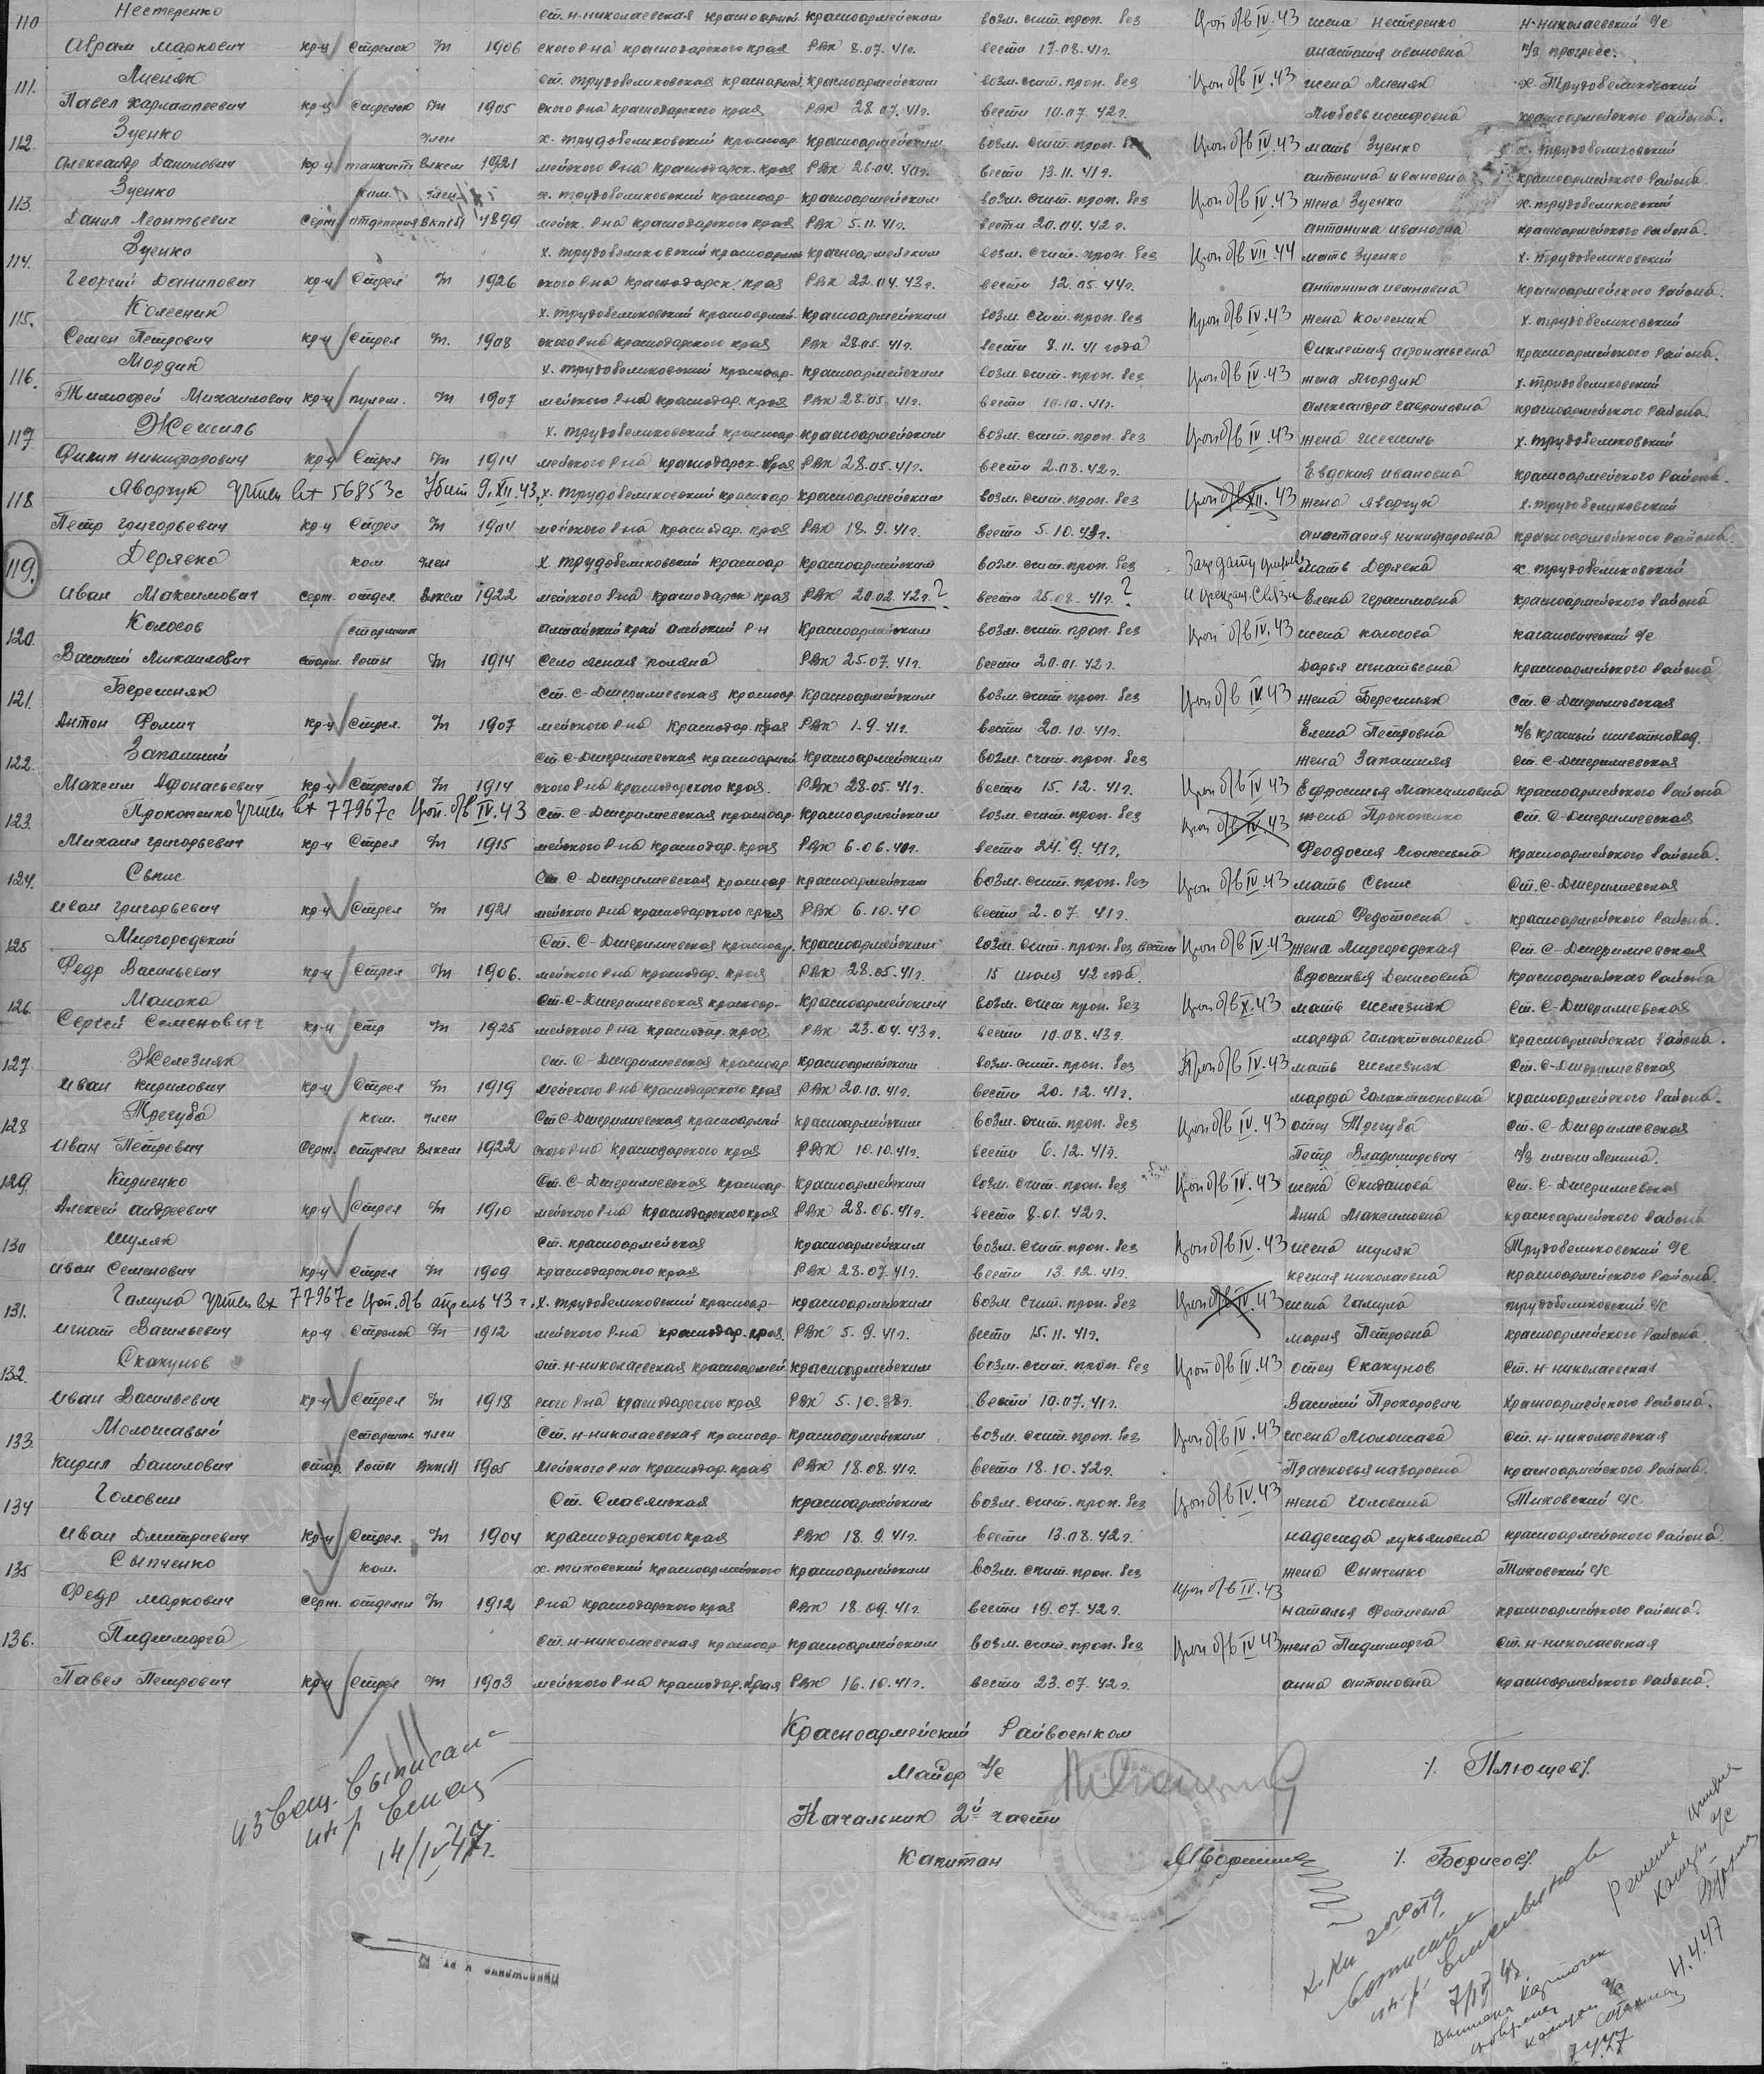 110 Нестеренко ст. н-николаевская красноармей Красноармейским возм. счит. проп. без Цроп б/в IV.43 жена Нестеренко н-николаевский с/с
Аврам Маркович кр-ц Стрелок б/п 1906 ского р-на краснодарского края РВК 8.07.41г. вести 17.08.41г. анастасия ивановна к/з прогресс.
111. Лисняк ст. трудобеликовская краснарм. Красноармейским возм. счит. проп. без Цроп б/в IV.43 жена Лисняк х-Трудобеликовский
Павел Харлампеевич кр-ц Стрелок б/п 1905 ского р-на краснодарского края РВК 28.07.41г. вести 10.07.42г. Любовь иосифовна красноармейского района.
112. Зуенко член х. трудобеликовский красноар- красноармейским возм. счит. проп. без Цроп б/в IV.43 мать Зуенко х. трудобеликовский
Александр Данилович кр-ц танкист влксм 1921 мейского р-на Краснодарск. края РВК вести 13.11.41г. антонина ивановна красноармейского района.
113. Зуенко ком. член х. трудобеликовский красноар- красноармейским возм. счит. проп. без Цроп б/в IV.43 жена Зуенко х. трудобеликовский
Данил Леонтьевич Серж. отделения вкп(б) 1899 мейск. р-на краснодарского края РВК 5.11.41г. вести 20.04.42г. антонина ивановна красноармейского района.
114. Зуенко х. трудобеликовский красноарм красноармейским возм. счит. проп. без Цроп б/в VII.44 мать Зуенко х. трудобеликовский
Георгий Данилович кр-ц Стрел б/п 1926 ского р-на Краснодарск. края РВК 22.04.43г. вести 12.05.44г. антонина ивановна красноармейского района.
115. Колесник х. трудобеликовский красноармей. Красноармейским возм. счит. проп. без Цроп б/в IV.43 жена Колесник х. трудобеликовский
Семен Петрович кр-ц Стрел б/п. 1908 ского р-на краснодарского края РВК 28.05.41г. вести 8.11.41 года Сиклетия афонасьевна красноармейского района.
116. Мордик х. трудобеликовский красноар- красноармейским возм. счит. проп. без Цроп б/в IV.43 жена Мордик х. трудобеликовский
Тимофей Михаилович кр-ц пулем. б/п 1907 мейского р-на краснодар. края РВК 28.05.41г. вести 10.10.41г. александра гавриловна красноармейского района.
117. Жежиль х. трудобеликовский красноар- красноармейским возм. счит. проп. без Цроп б/в IV.43 жена Жежиль х. трудобеликовский
Филип никифорович кр-ц Стрел б/п 1914 мейского р-на краснодарск. края РВК 28.05.41г. вести 2.08.42г. Евдокия ивановна красноармейского района.
118. Яворчук Учтен вх 56853с Убит 9.XII.43. х. трудобеликовский красноар- красноармейским возм. счит. проп. без Цроп б/в XII.43 жена Яворчук х. трудобеликовский
Петр григорьевич кр-ц Стрел б/п 1904 мейского р-на краснодар. края РВК 18.9.41г. вести 5.10.43г. анастасия никифоровна красноармейского района.
119. Деряека ком член х трудобеликовский красноар- красноармейским возм. счит. проп. без Запр дату призыва мать Деряека х. трудобеликовский
Иван Максимович серж. отдел. влксм 1922 мейского р-на краснодарск края РВК 20.02.42г.? вести 25.08.41г.? и прекращ. связи Елена герасимовна красноармейского района
120. Колосов старшина алтайский край алейский р-н Красноармейским возм. счит. проп. без Цроп б/в IV.43 жена колосова кагановический с/с
Василий Михаилович старш. роты б/п 1914 село ясная поляна РВК 25.07.41г. вести 20.01.42г. дарья игнатьевна красноармейского района
121. Бережняк ст. С-Джерилиевская красноар- Красноармейским возм. счит. проп. без Цроп б/в IV.43 жена Бережняк ст. С-Джерилиевская
Антон Фомич кр-ц Стрел. б/п 1907 мейского р-на Краснодар. края РВК 1.9.41г. вести 20.10.41г. Елена Петровна к/з красный животновод.
122. Запашний ст. С-Джерилиевская красноармей Красноармейским возм. счит. проп. без жена Запашняя ст. С-Джерилиевская
Максим Афонасьевич кр-ц Стрелок б/п 1914 ского р-на краснодарского края. РВК 28.05.41г. вести 15.12.41г. Цроп б/в IV.43 Ефросинья Максимовна красноармейского района
123. Прокопенко Учтен вх 77967с Цроп. б/в IV.43 ст. С-Джерилиевская красноар- Красноармейским возм. счит. проп. без Цроп б/в IV.43 жена Прокопенко ст. С-Джерилиевская
Михаил григорьевич кр-ц Стрел б/п 1915 мейского р-на Краснодар. края РВК 6.06.41г. вести 24.9.41г. Феодосия Моисеевна красноармейского района.
124. Свпис ст. С-Джерилиевская красноар- красноармейским возм. счит. проп. без Цроп б/в IV.43 мать Свпис ст. С-Джерилиевская
иван григорьевич кр-ц Стрел б/п 1921 мейского р-на краснодарского края РВК 6.10.40 вести 2.07.41г. анна Федотовна красноармейского района.
125 Миргородский ст. С-Джерилиевская красноар. Красноармейским возм. счит. проп. без вести Цроп б/в IV.43 жена Миргородская ст. С-Джерилиевская
Федр Васильевич кр-ц Стрел б/п 1906. мейского р-на краснодар. края РВК 28.05.41г. 15 июля 42 года Ефросинья Денисовна Красноармейского района
126. Манака ст. С-Джерилиевская красноар- Красноармейским возм. счит проп. без Цроп б/в X.43 мать железняк ст. С-Джерилиевская
Сергей Семенович кр-ц стр б/п 1925 мейского р-на краснодар. края РВК 23.04.43г. вести 10.08.43г. марфа галактионовна красноармейского района.
127. Железняк ст. С-Джерилиевская красноар красноармейским возм. счит. проп. без Цроп б/в IV.43 мать железняк ст. С-Джерилиевская
иван кирилович кр-ц Стрел б/п 1919 мейского р-на краснодарского края РВК 20.10.41г. вести 20.12.41г. марфа Галактионовна красноармейского района.
128 Трегуба ком. член ст С-Джерилиевская красноармей красноармейским возм. счит. проп. без Цроп б/в IV.43 отец Трегуба ст. С-Джерилиевская
иван Петрович Серж. отделен влксм 1922 ского р-на Краснодарского края РВК 10.10.41г. вести 6.12.41г. Петр Владимирович к/з имени Ленина.
129. Кидненко ст. С-Джерилиевская красноар- красноармейским возм. счит. проп. без Цроп б/в IV.43 жена Скиданова ст. С-Джерилиевская
Алексей андреевич кр-ц Стрел б/п 1910 мейского р-на Краснодарского края РВК 28.06.41г. вести 8.01.42г. Анна Максимовна красноармейского района
130 шуляк ст. красноармейская Красноармейским возм. счит. проп. без Цроп б/в IV.43 жена шуляк Трудобеликовский с/с
иван Семенович кр-ц Стрел б/п 1909 краснодарского края РВК 28.07.41г. вести 13.12.41г. ксения николаевна красноармейского района.
131. Гамула Учтен вх 77967с Цроп. б/в апрель 43 г. х. трудобеликовский красноар- красноармейским возм. счит. проп. без Цроп б/в IV.43 жена Гамула трудобеликовский с/с
игнат Васильевич кр-ц Стрелок б/п 1912 мейского р-на краснодар. края. РВК 5.9.41г. вести 15.11.41г. мария Петровна красноармейского района.
132. Скакунов ст. н-николаевская красноармей. Красноармейским возм. счит. проп. без Цроп б/в IV.43 отец Скакунов ст. н-николаевская
иван Васильевич кр-ц Стрел б/п 1918 ского р-на краснодарского края РВК 5.10.38г. вести 10.07.41г. Василий Прохорович Красноармейского района.
133. Моложавый старшин член ст. н-николаевская красноар- Красноармейским возм. счит. проп. без Цроп б/в IV.43 жена Моложава ст. н-николаевская
Кирил Данилович стар. роты вкп(б) 1905 мейского р-на Краснодар. края РВК 18.08.41г. вести 18.10.42г. Прасковья назаровна красноармейского района.
134 Головин ст. Славянская красноармейским возм. счит. проп. без Цроп б/в IV.43 жена головина Тиховский с/с
иван Дмитриевич кр-ц Стрел. б/п 1904 краснодарского края РВК 18.9.41г. вести 13.08.42г. надежда лукьяновна красноармейского района
135 Сыпченко ком. х. тиховский красноармейского Красноармейским возм. счит. проп. без Цроп б/в IV.43 жена Сыпченко Тиховский с/с
Федр маркович серж. отделен б/п 1912 р-на краснодарского края РВК 18.09.41г. вести 19.07.42г. наталья фотиевна красноармейского района.
136. Пидиморга ст. н-николаевская красноар- красноармейским возм. счит. проп. без Цроп б/в IV 43 жена Пидиморга ст. н-николаевская
Павел Петрович кр-ц Стрел б/п 1903 мейского р-на краснодар. края РВК 16.10.41г. вести 23.07.42г. анна антоновна красноармейского района.
Красноармейский Райвоенком
Майор А/с /. Плющев/.
Начальник 2й части
Капитан /. Борисов/.
извещ. выписал
инр
14/IV 47г.
4.4.47
7.4.47